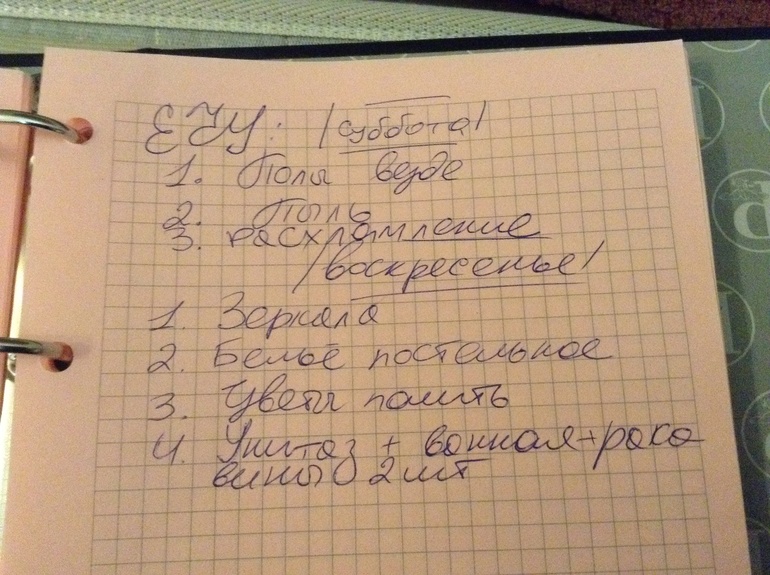 ЕЧУ: /суббота/
1. Полы везде
2. Пыль
3. расхламление
/воскресенье/
1. Зеркала
2. Бельё постельное
3. Цветы полить
4. Унитаз + ванная + рако
вины 2 шт